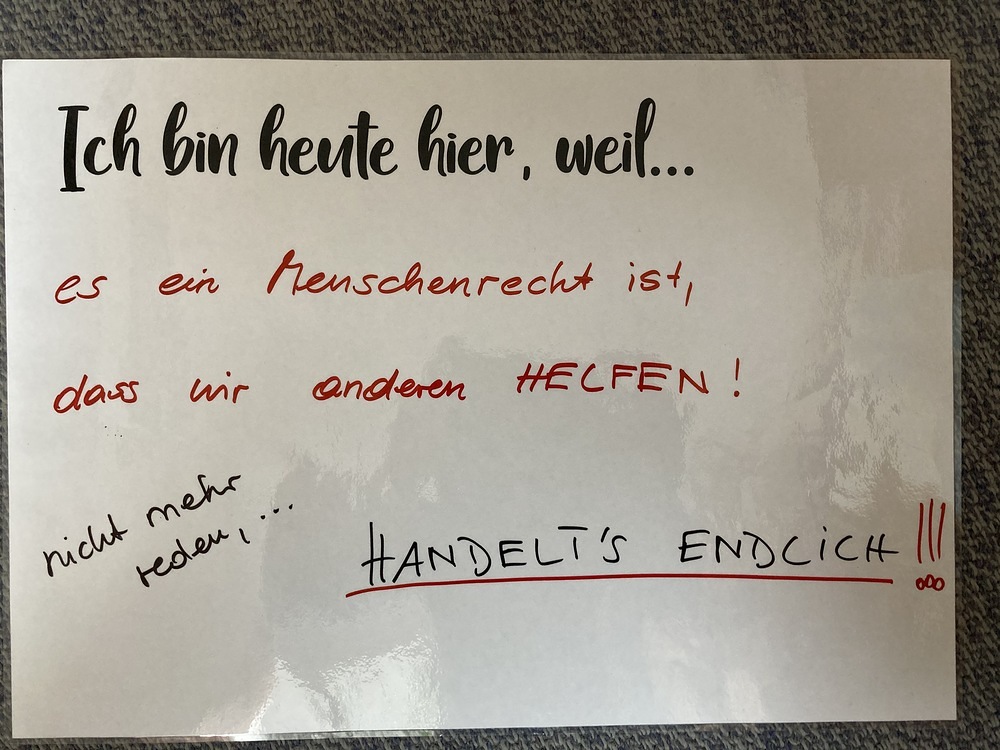 Ich bin heute hier, weil...
es ein Menschenrecht ist,
dass wir anderen HELFEN!
nicht mehr
reden, ...
HANDELT'S ENDLICH !!!